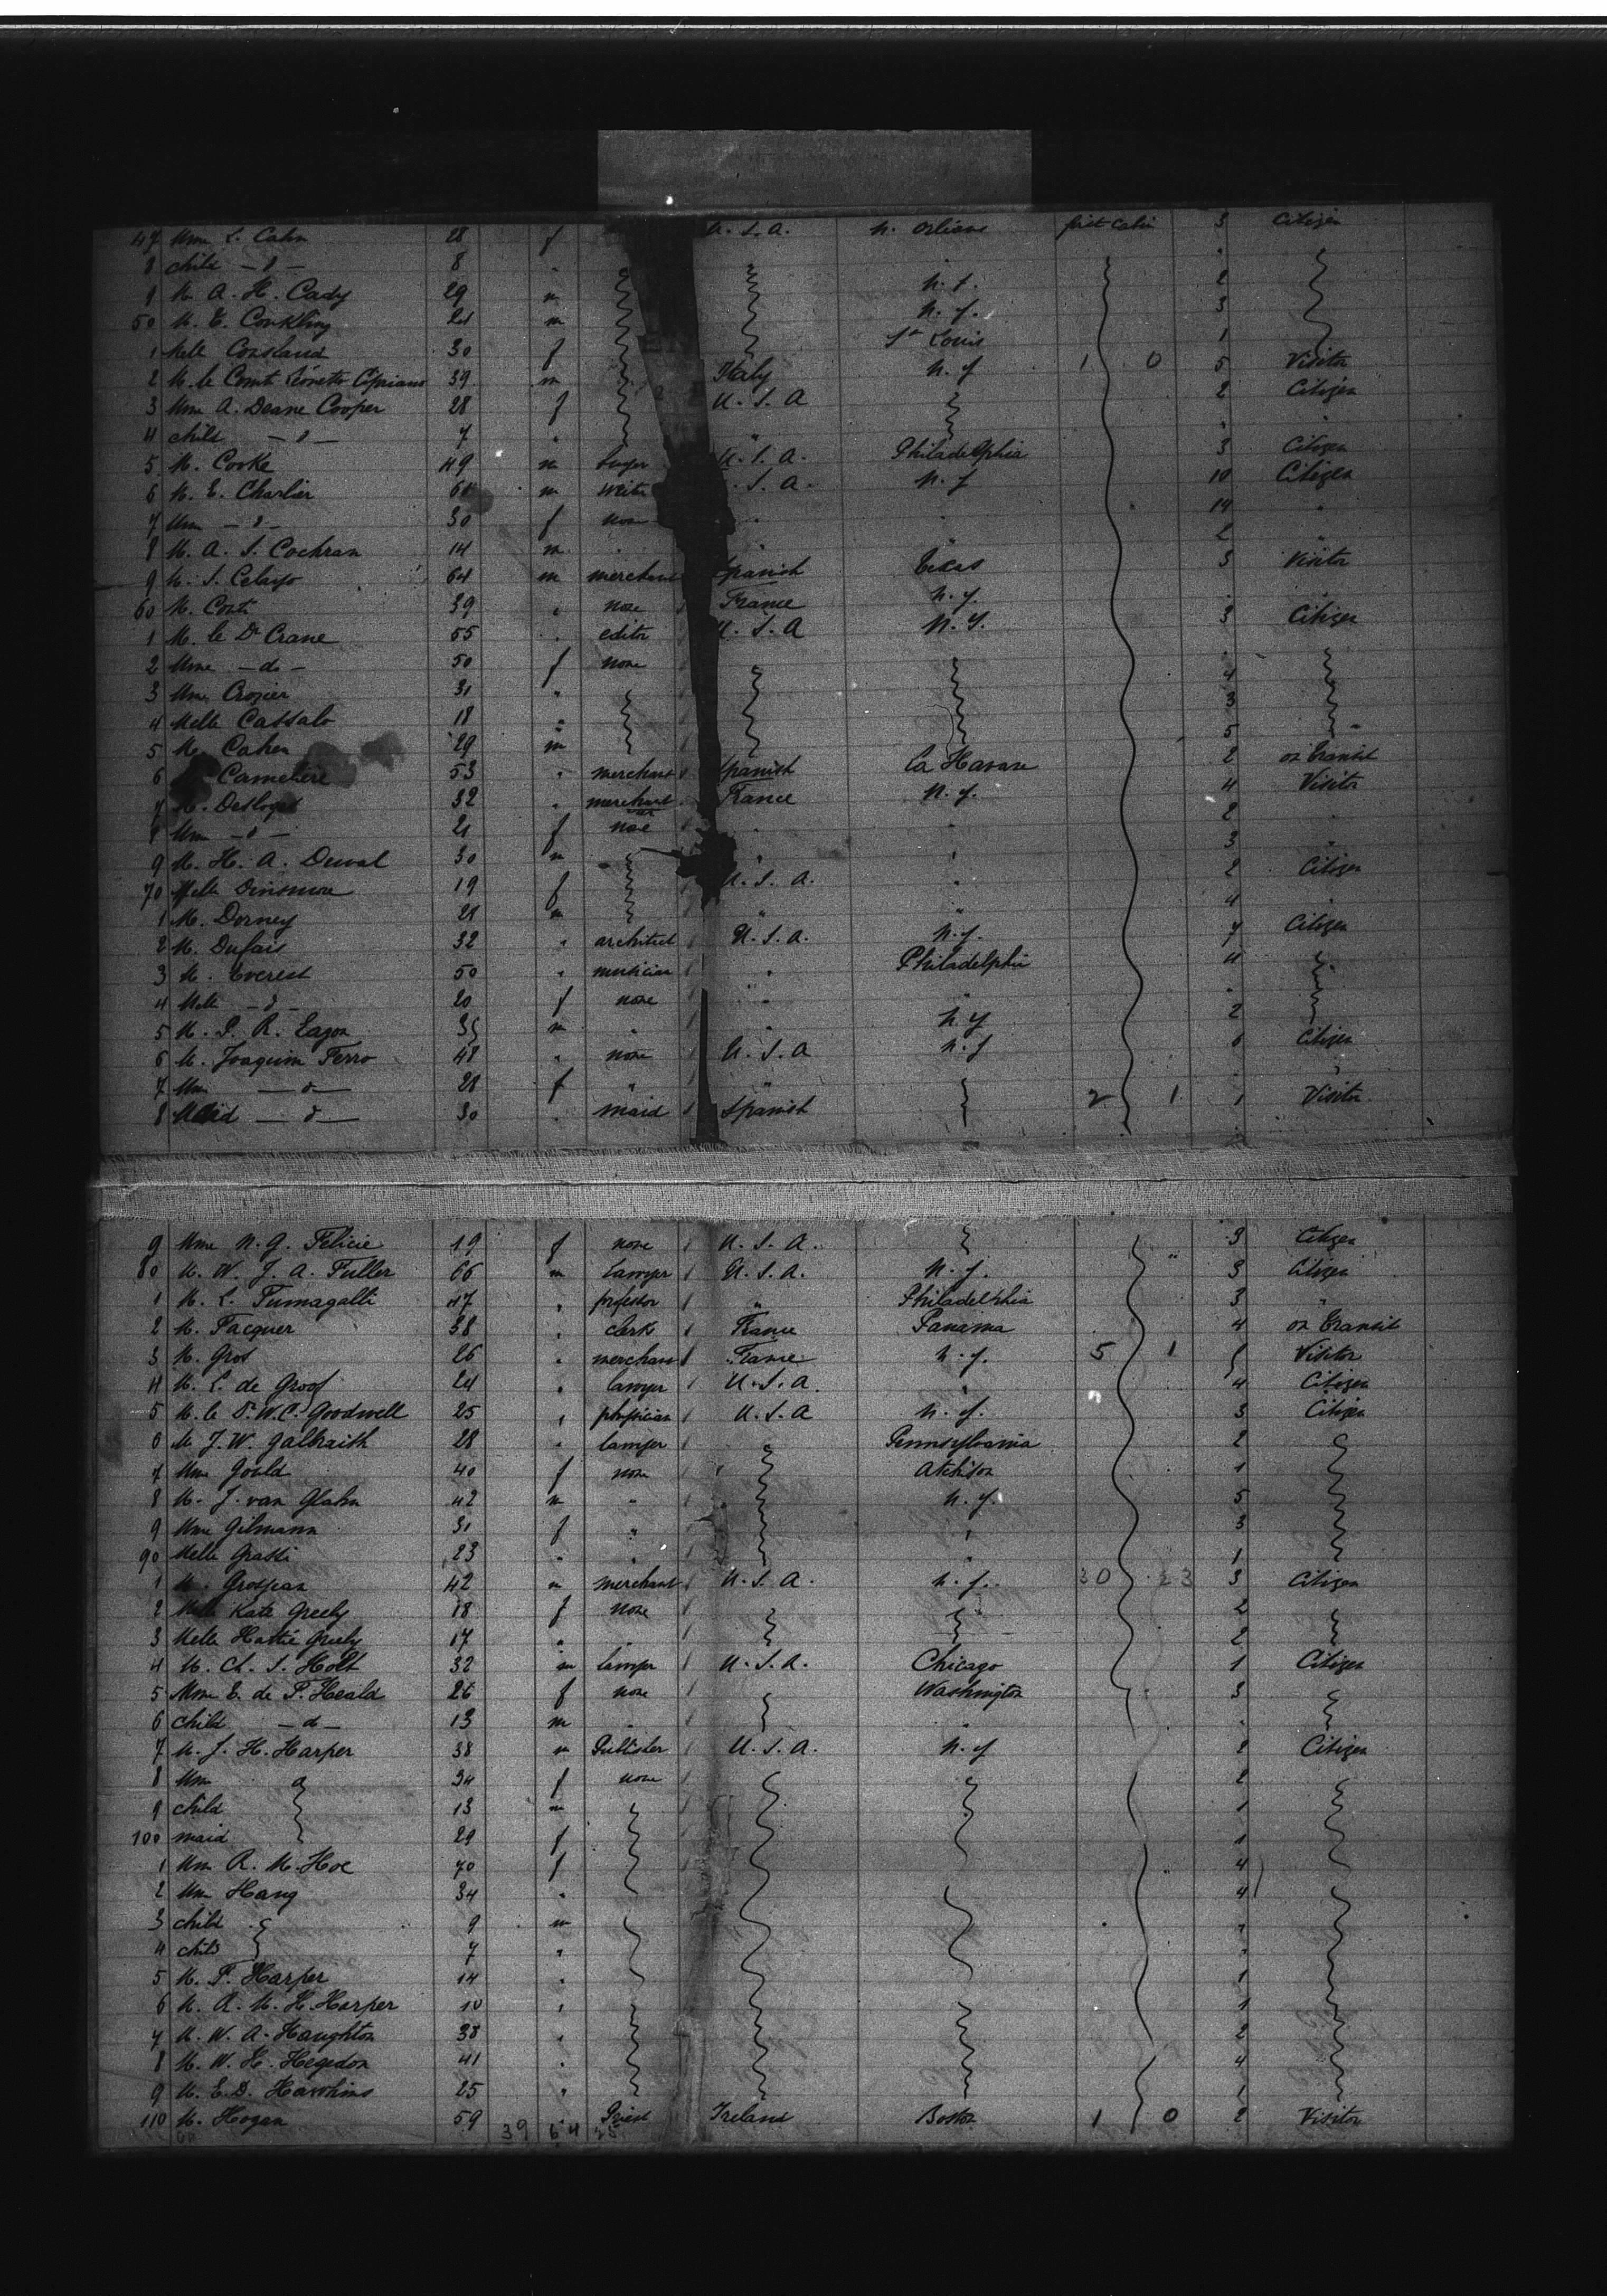 47 Mme L. Cahn 28 f U.S.A. N. Orléans first Cabin 3 Citizen
8 child — d — 8 "
9 M. A. H. Cady 29 m N.Y. 2
50 M. E. Conkling 21 m N.Y. 3
1 Melle Consland 30 f St Louis 1
2 M. le Comte Léonetto Cipriano 39 m Italy N.Y 1 0 5 Visitor
3 Mme A. Deane Cooper 28 f U.S.A 2 Citizen
4 child — d — 7 " " "
5 M. Cooke 49 m U.S.A. Philadelphia 3 Citizen
6 M. E. Charlier m S.A. N.Y 10 Citizen
7 Mme — d — 30 f none " " 14 "
8 M. A. S. Cochran 14 m " " 2 "
9 M. S. Celayo 64 m merchant Spanish Texas 3 Visitor
60 M. Conti 39 " none France N.Y. "
1 M. le Dr Crane 55 " editor U.S.A N.Y. 3 Citizen
2 Mme — d — 50 f none "
3 Mme Crozier 31 " 4
4 Melle Cassalo 18 " 3
5 M. Cahen 29 m 5
6 Camelière 53 " merchant Spanish La Havane 2 on transit
7 M. Desloges 32 " merchant France N.Y. 4 Visitor
8 Mme — d — 21 f none " " 2
9 M. H. A. Duval 30 m " " 3 "
70 Melle Dinsmore 19 f U.S.A. " 2 Citizen
1 M. Dorney 28 m " " 4 "
2 M. Dufais 32 " architect U.S.A. N.Y. 7 Citizen
3 M. Everest 50 " musician " Philadelphia 4
4 Melle — d — 20 f none " " "
5 M. P. R. Eagon 35 m " " N.Y 2
6 M. Joaquim Ferro 48 " none U.S.A N.Y 6 Citizen
7 Mme — d — 28 f " "
8 Maid — d — 30 " maid Spanish 2 1 1 Visitor
9 Mme N. G. Felicie 19 f none U.S.A. 3 Citizen
80 M. W. J. A. Fuller 66 m Lawyer U.S.A. N.Y. 3 Citizen
1 M. L. Fumagalli 47 " professor " Philadelphia 3 "
2 M. Facquer 38 " clerk France Panama 4 on transit
3 M. Gros 26 " merchant France N.Y. 5 1 Visitor
4 M. L. de Groof 24 " lawyer U.S.A. " 4 Citizen
5 M. le Dr. W. C. Goodwell 25 " physician U.S.A N.Y. 3 Citizen
6 M. J. W. Galbraith 28 " lawyer Pennsylvania 2
7 Mme Gould 40 f none Atchison 1
8 M. J. van Glahn 42 m " N.Y. 5
9 Mme Gilmann 31 f " " 3
90 Melle Grassi 23 " " " 1
1 M. Grosjean 42 m merchant U.S.A. N.Y. 30 23 3 Citizen
2 Melle Kate Greely 18 f none 2
3 Melle Hattie Greely 17 " " 2
4 M. Ch. S. Holt 32 m lawyer U.S.A. Chicago 1 Citizen
5 Mme E. de P. Heald 26 f none Washington 3
6 child — d — 13 m " " "
7 M. J. H. Harper 38 m Publisher U.S.A. N.Y 2 Citizen
8 Mme 34 f none 2
9 child 13 m 1
100 maid 29 f 1
1 Mme R. M. Hoe 70 f 4
2 Mme Haug 34 " 4
3 child 9 m "
4 child 7 " "
5 M. F. Harper 14 " 1
6 M. R. M. H. Harper 10 " 1
7 M. W. A. Haughton 38 " 2
8 M. W. H. Hegedon 41 " 4
9 M. E. D. Hawkins 25 " 1
110 M. Hogan 59 " Priest Ireland Boston 1 0 2 Visitor
39 64 25